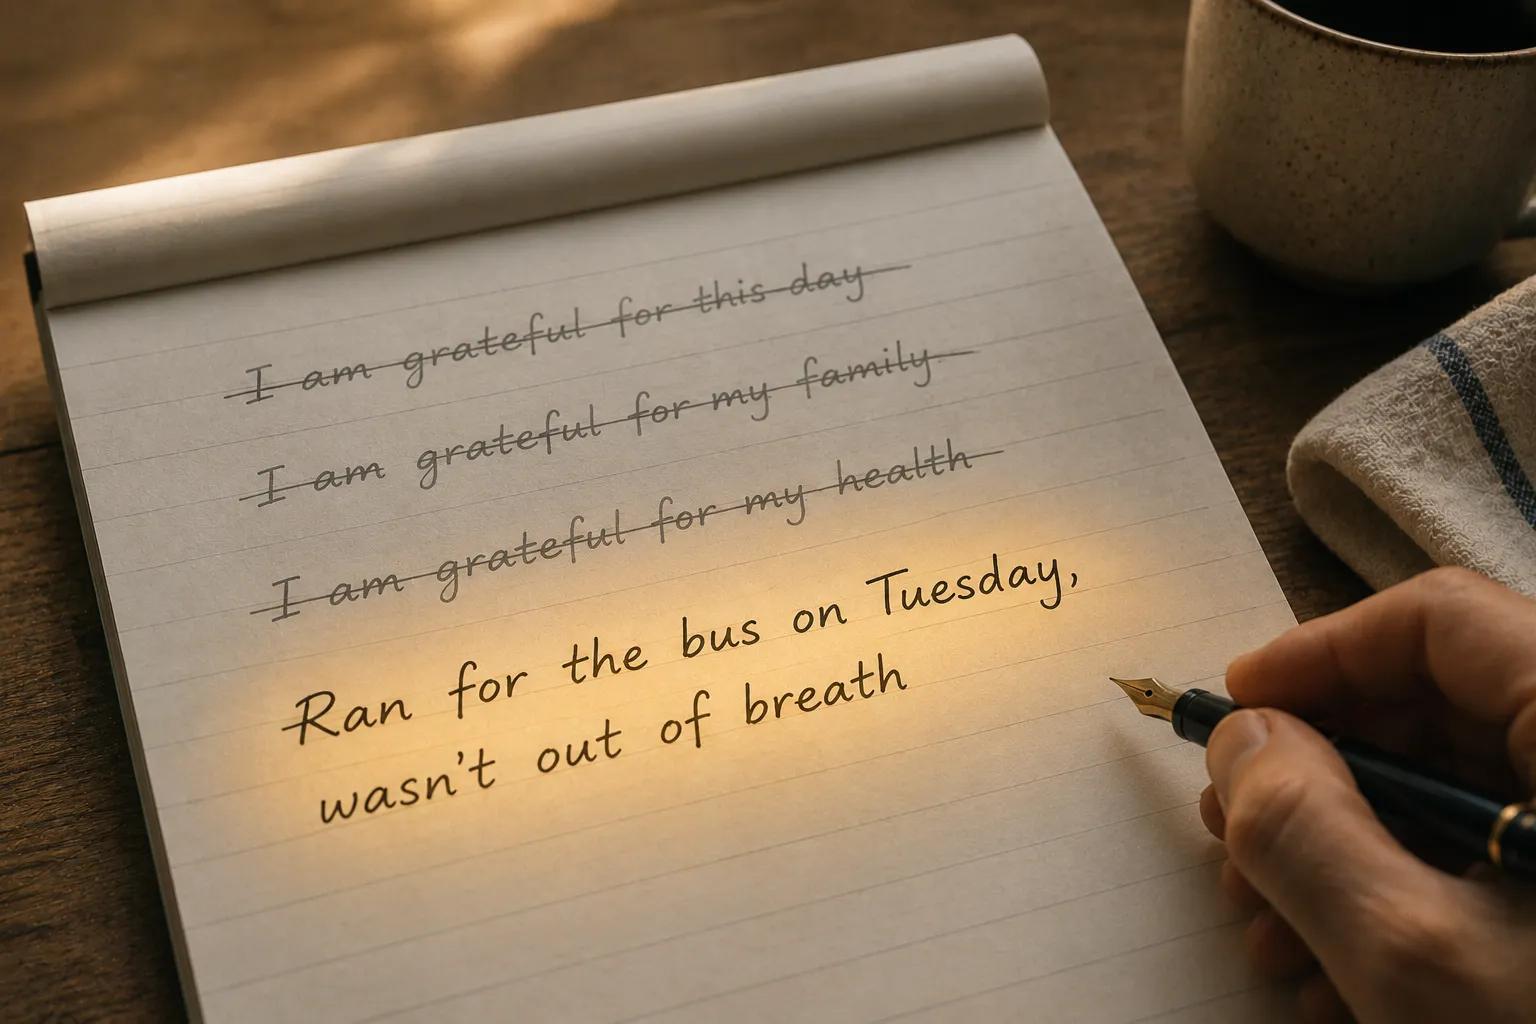 I am grateful for this day
I am grateful for my family
I am grateful for my health
Ran for the bus on Tuesday,
wasn't out of breath